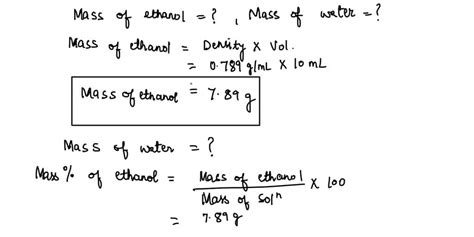 Mass of ethanol = ? , Mass of water = ?
Mass of ethanol = Density X Vol.
= 0.789 g/mL X 10 mL
Mass of ethanol = 7.89 g
Mass of water = ?
Mass % of ethanol = Mass of ethanol / Mass of solⁿ X 100
= 7.89 g